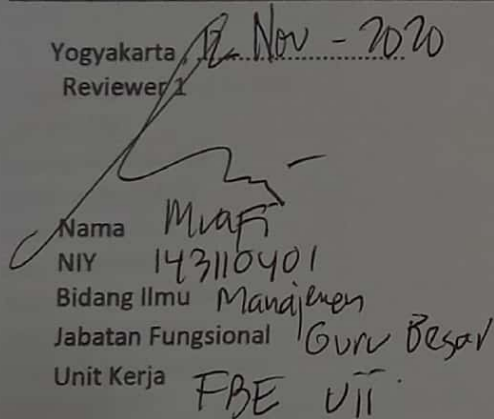 Yogyakarta, 12 Nov - 2020
Reviewer 1
Nama Muafi
NIY 143110401
Bidang Ilmu Manajemen
Jabatan Fungsional Guru Besar
Unit Kerja FBE UII